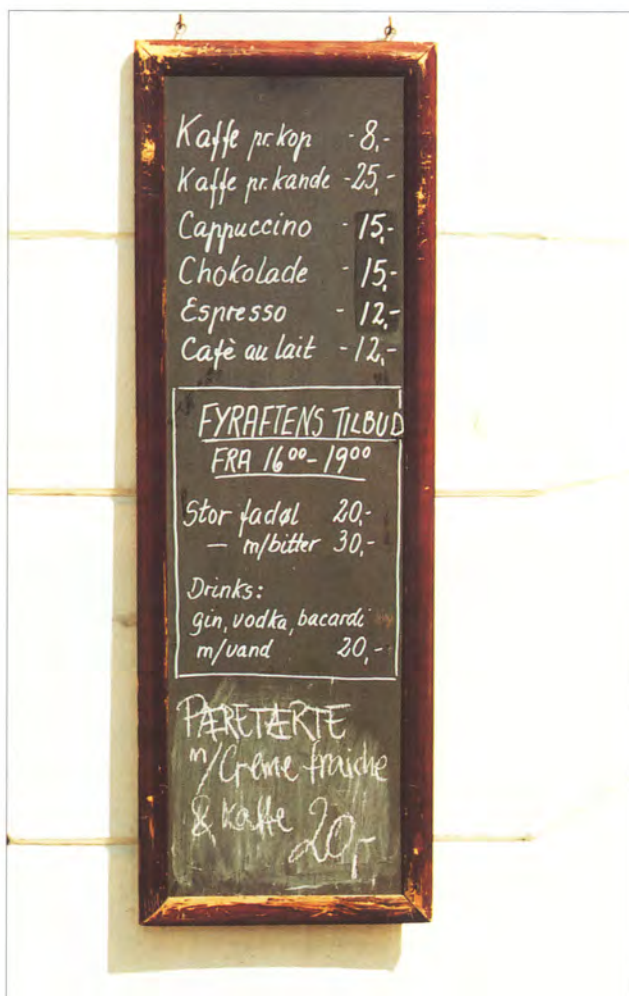 Kaffe pr. kop - 8,-
Kaffe pr. kande - 25,-
Cappuccino - 15,-
Chokolade - 15,-
Espresso - 12,-
Cafè au lait - 12,-
FYRAFTENS TILBUD
FRA 16⁰⁰ - 19⁰⁰
Stor fadøl 20,-
— m/bitter 30,-
Drinks:
gin, vodka, bacardi
m/vand 20,-
PÆRETÆRTE
m/Crème fraiche
& kaffe 20,-